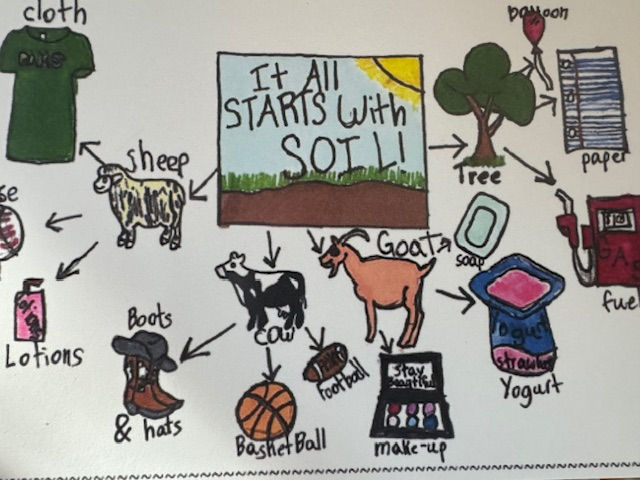 cloth
balloon
It All
STARTS with
SOIL!
paper
Tree
sheep
se
GAS
fuel
Goat
soap
Lotions
Boots
& hats
cow
football
BasketBall
Stay
Beautiful
make-up
Yogurt
strawberry
Yogurt